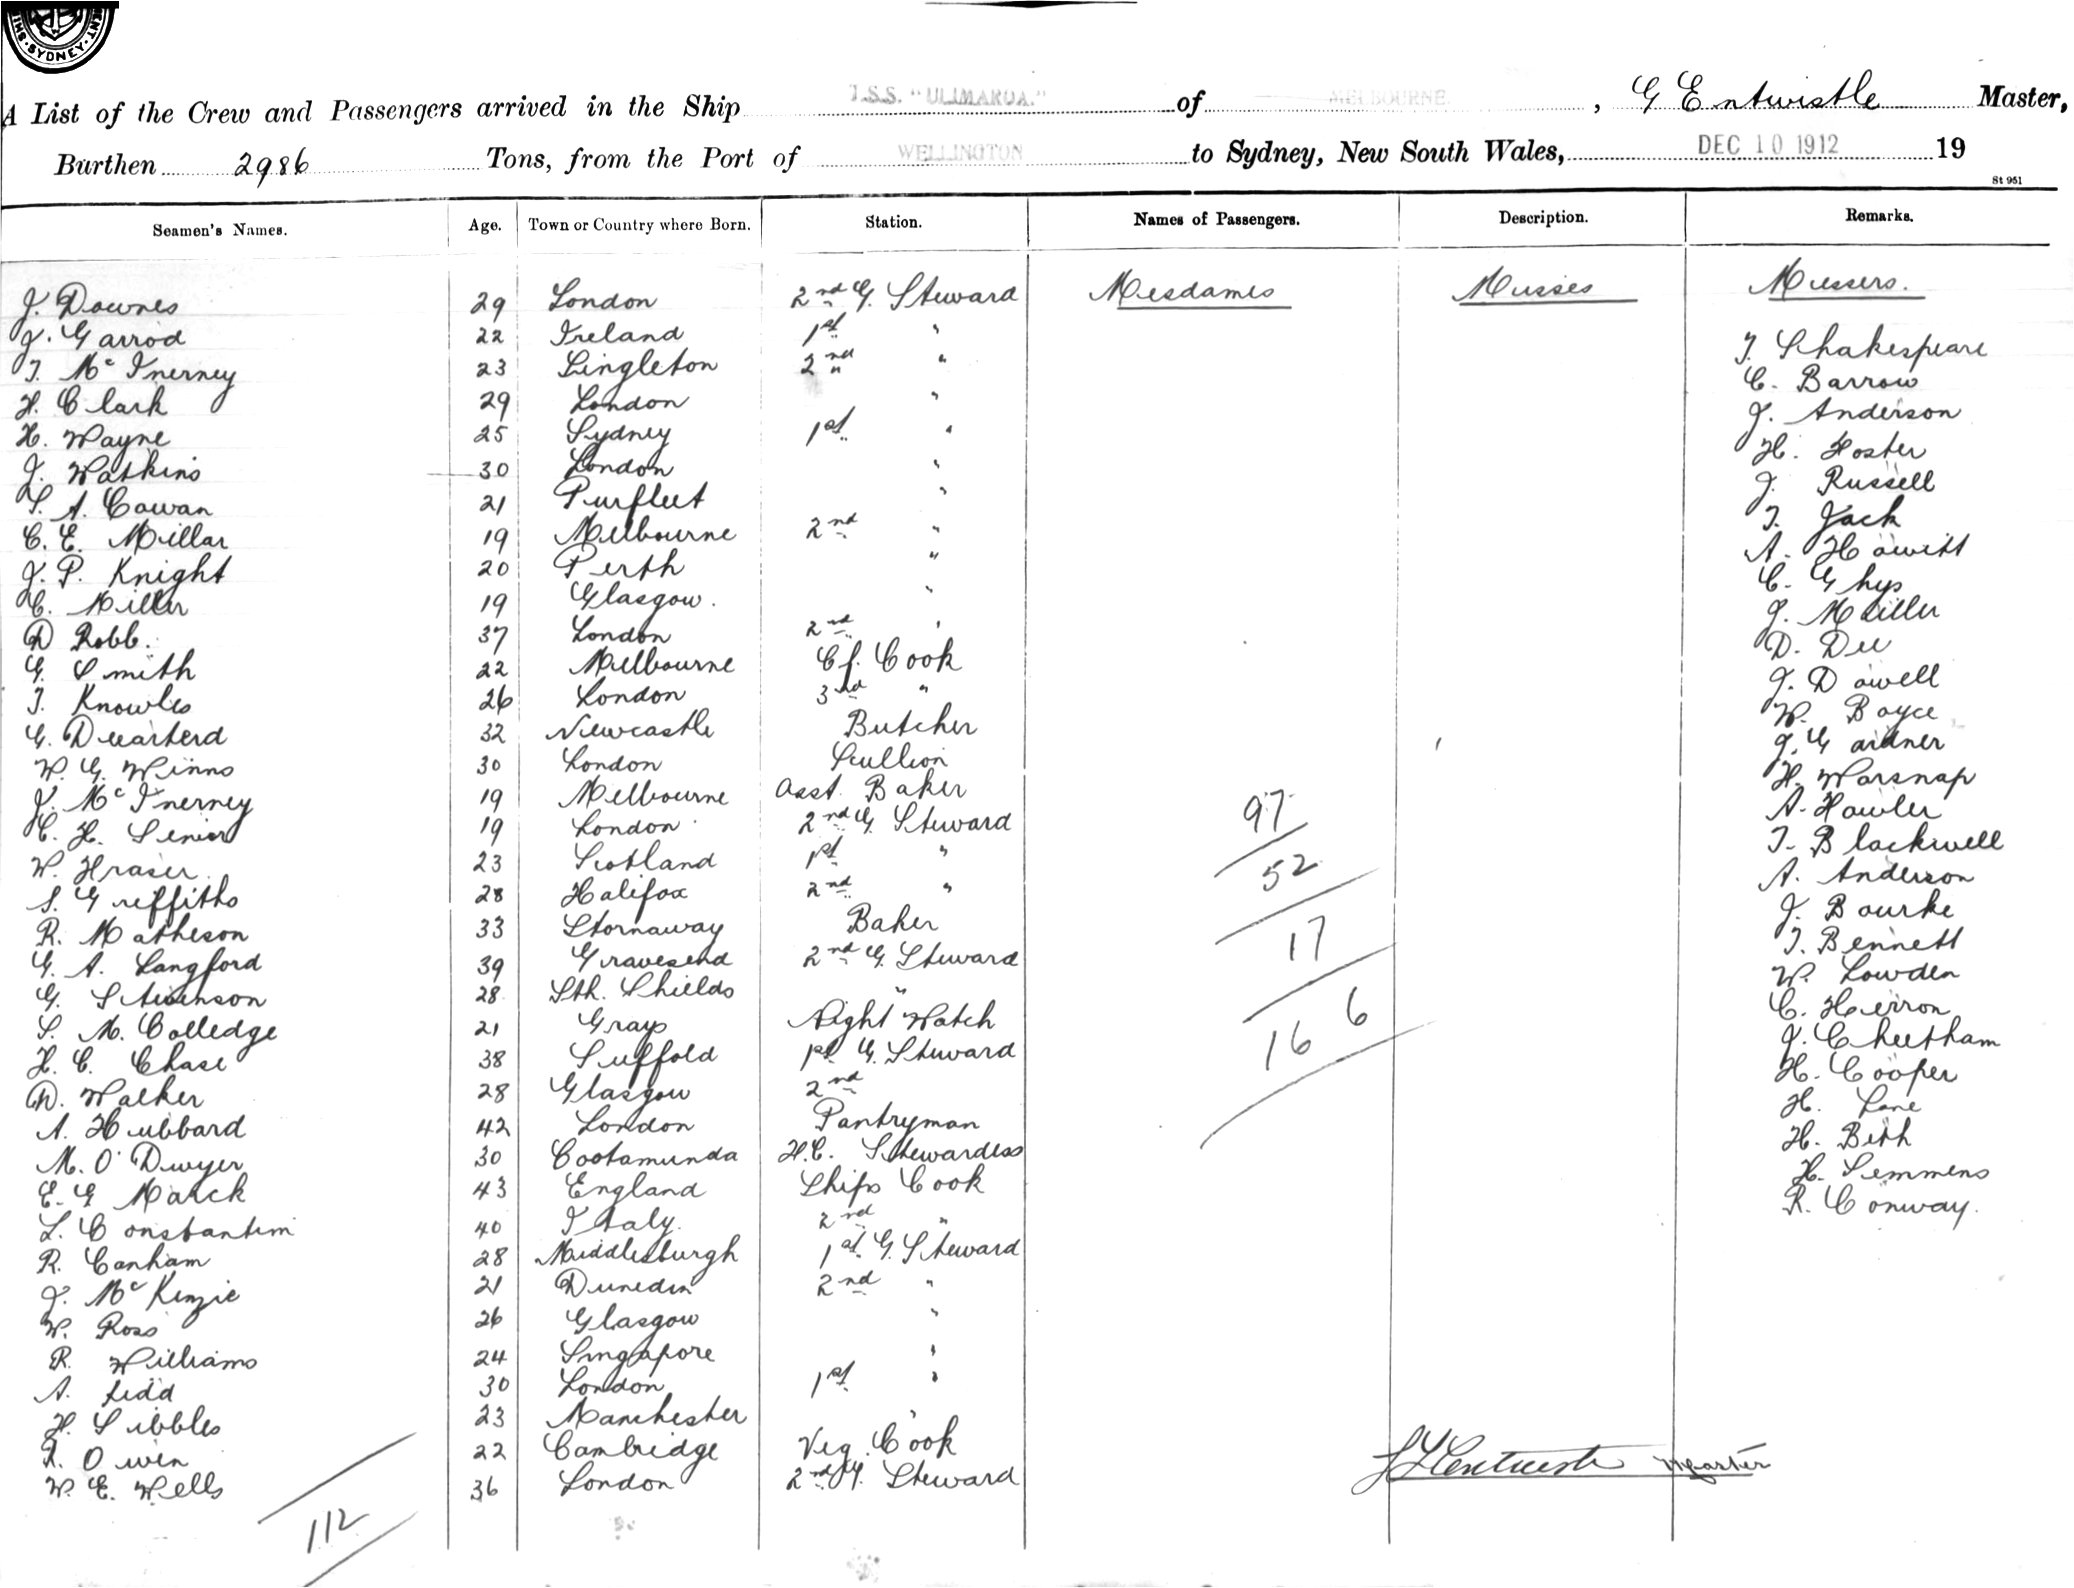 SYDNEY
A List of the Crew and Passengers arrived in the Ship T.S.S. "ULIMAROA." of MELBOURNE , G Entwistle Master,
Burthen 2986 Tons, from the Port of WELLINGTON to Sydney, New South Wales, DEC 10 1912 19
St 951
Seamen's Names. Age. Town or Country where Born. Station. Names of Passengers. Description. Remarks.
J. Downes 29 London 2nd G. Steward Mesdames Misses Messers.
J. Garrod 22 Ireland 1st " T. Shakespeare
T. McInerney 23 Singleton 2nd " C. Barrow
H. Clark 29 London " J. Anderson
H. Wayne 25 Sydney 1st " H. Foster
J. Watkins 30 London " J. Russell
S. A. Cowan 21 Purfleet " T. Jack
C. E. Millar 19 Melbourne 2nd " A. Howitt
J. P. Knight 20 Perth " C. Ghys
C. Miller 19 Glasgow. " J. Miller
D Robb. 37 London 2nd " D. Dee
G. Smith 22 Melbourne Cf. Cook J. Dowell
T. Knowles 26 London 3rd " W. Boyce
G. 32 Newcastle Butcher J. Gardner
W. G. Winns 30 London Scullion H. Warsnap
J. McInerney 19 Melbourne Asst. Baker 97 A. Fowler
C. H. Senior 19 London 2nd G. Steward T. Blackwell
W. Fraser. 23 Scotland 1st " 52 A. Anderson
S. Greffiths 28 Halifax 2nd " J. Bourke
R. Matheson 33 Stornaway Baker 17 T. Bennett
G. A. Langford 39 Gravesend 2nd G. Steward W. Lowden
G. Stevenson 28 Sth. Shields " 6 C. Herron
S. M. Colledge 21 Grays Night Watch 16 J. Cheetham
H. C. Chase 38 Suffold 1st G. Steward H. Cooper
D. Walker 28 Glasgow 2nd H. Lane
A. Hubbard 42 London Pantryman H. Beth
M. O'Dwyer 30 Cootamunda F.C. Stewardess H. Semmens
E. G Marck 43 England Ships Cook R. Conway.
L. Constantini 40 Italy. 2nd "
R. Canham 28 Middlesburgh 1st G. Steward
J. McKenzie 21 Dunedin 2nd "
W. Ross 26 Glasgow "
R. Williams 24 Singapore "
A. Kidd 30 London 1st "
H. Sibbles 23 Manchester "
R. Owen 22 Cambridge Veg. Cook
W. E. Wells 36 London 2nd G. Steward
Entwistle Master
112